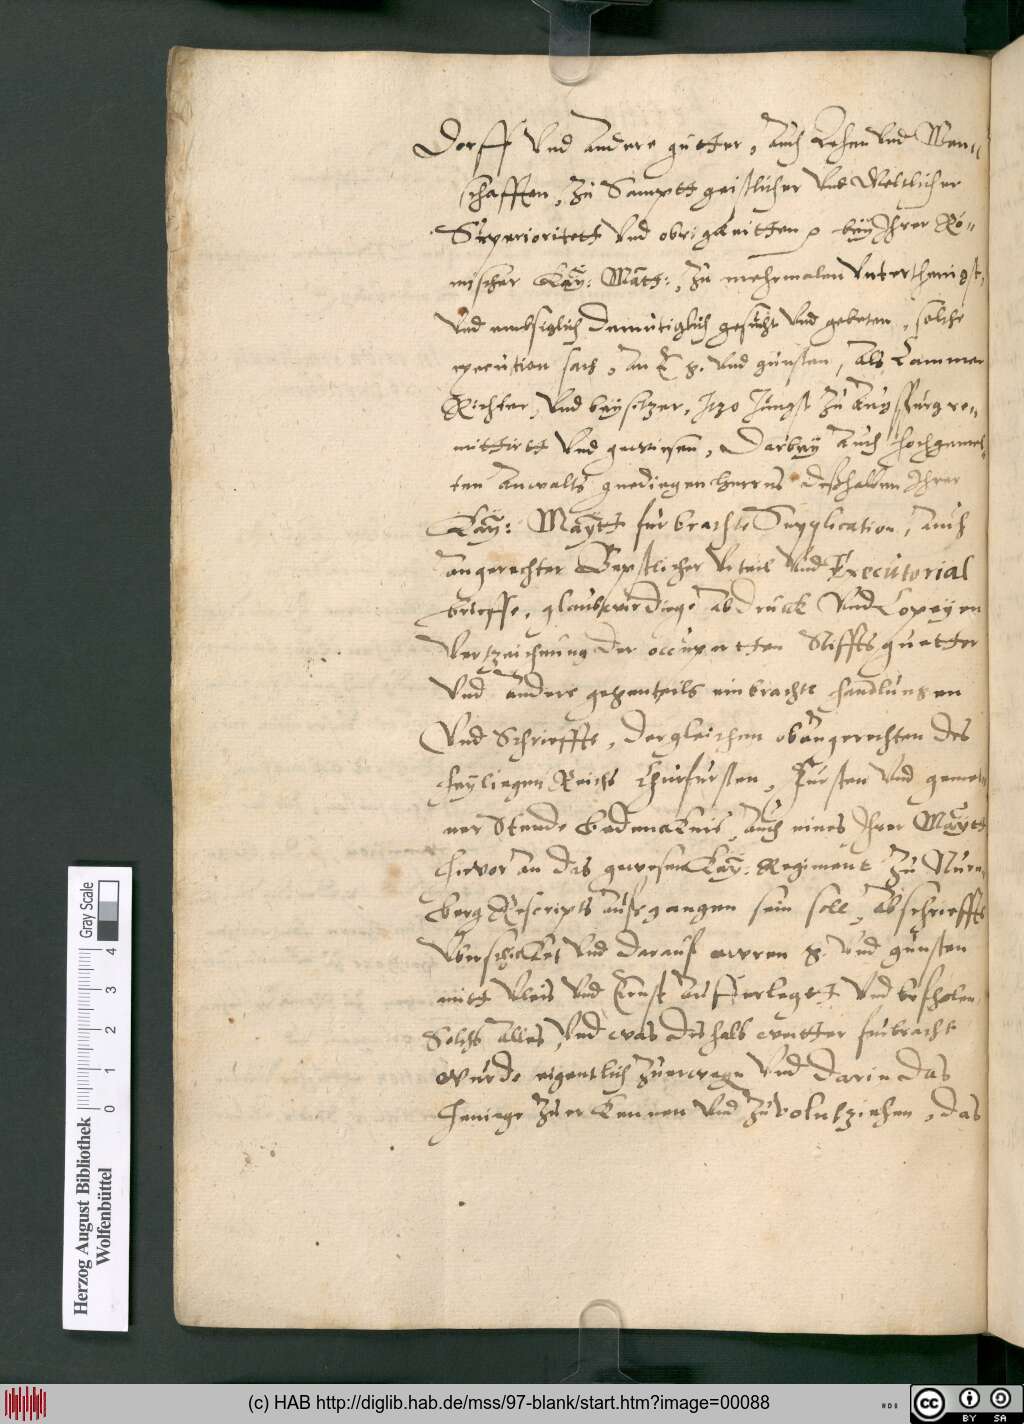 Dorff Vnd andere gütter, auch Lehen vnd Man=
schafften, zu Samptt geistlicher vnd Weltlicher
Superioritett Vnd obrigkeitten bey Ihrer Rö=
mischer Kay: Matt: zu mehrmalen Vnterthenigst,
Vnd embsiglich Demütiglich gesücht Vnd gebeten, solche
execution sach, an E g. vnd günsten, als Cammer
Richter, Vnd beysitzer, itzo Jüngst zu Augspürg re=
mittirtt Vnd gewiesen, Darbey auch hochgemel=
ten Anwalts gnedigen herrns deßhalben Ihrer
Kay: Maytt fürbrachte Supplication, auch
angerechter Bepstlicher Vrteil Vnd Executorial
brieffe, glaubwirdige abdrück Vnd Copeyen
Vertzeichnüng der occupertten Stiffts guetter
Vnd andere gegenteils einbrachte handlungen
Vnd Schrieffte, dergleichen obangerechten des
heyligen Reichs Churfürsten, Fürsten Vnd gemei=
ner Stende Bedencknis, auch eines Ihrer Maytt
hievor an das gewesen Kay: Regiment zu Nürn=
berg Rescripts außgangen sein soll, abschriefft
Vberschicket Vnd darauf ewren g. vnd günsten
mitt Vleis Vnd Ernst aufferlegtt Vnd befholen
Solchs alles, Vnd was deshalb weitter fürbracht
würde eigentlich zuerwegen Vnd darin das
Jenige zu erkennen Vnd zu volntziehen, das
Herzog August Bibliothek
Wolfenbüttel
0 1 2 3 4
Gray Scale
(c) HAB http://diglib.hab.de/mss/97-blank/start.htm?image=00088
cc
BY SA